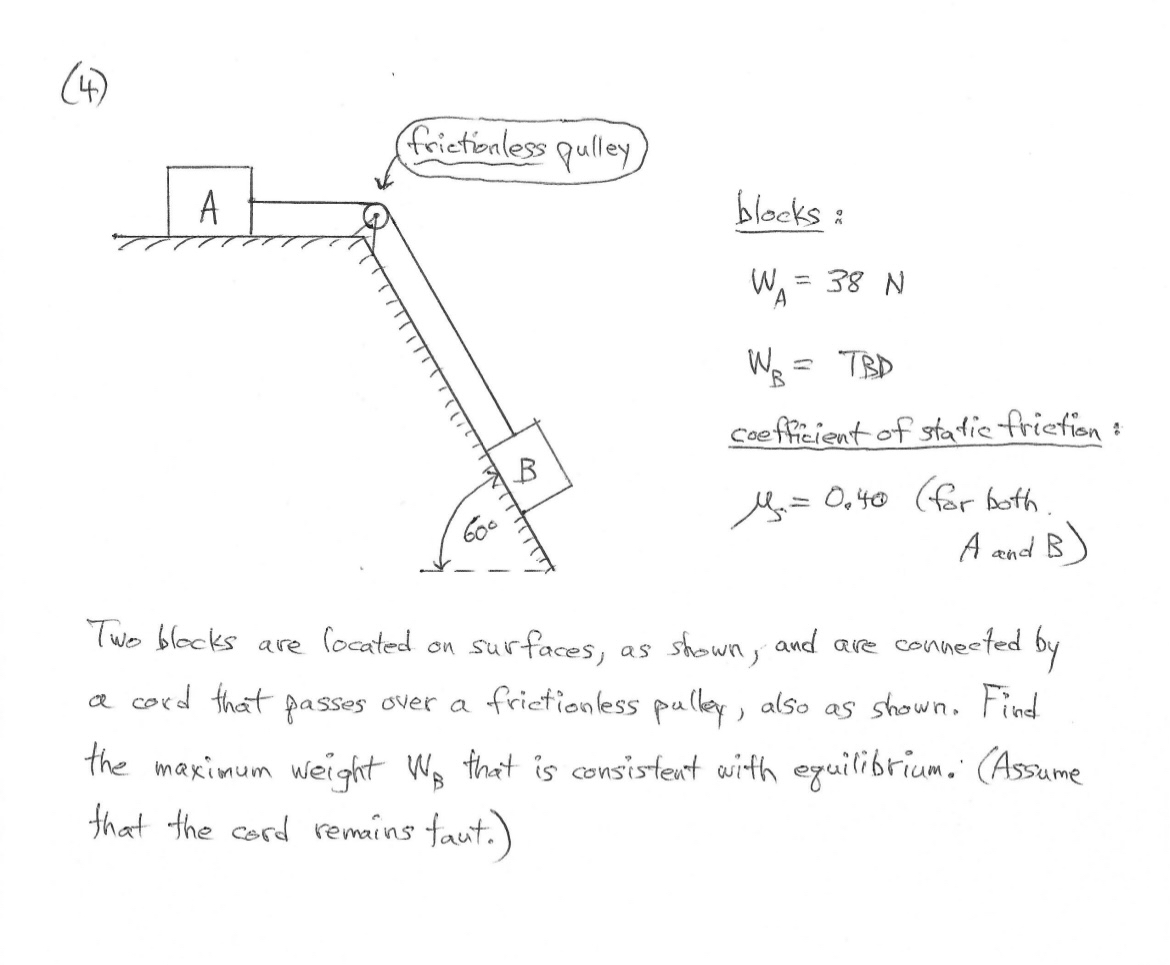 (4)
frictionless pulley
A
blocks:
W_A = 38 N
W_B = TBD
coefficient of static friction:
B
μ_s = 0.40 (for both
A and B)
60°
Two blocks are located on surfaces, as shown, and are connected by
a cord that passes over a frictionless pulley, also as shown. Find
the maximum weight W_B that is consistent with equilibrium. (Assume
that the cord remains taut.)